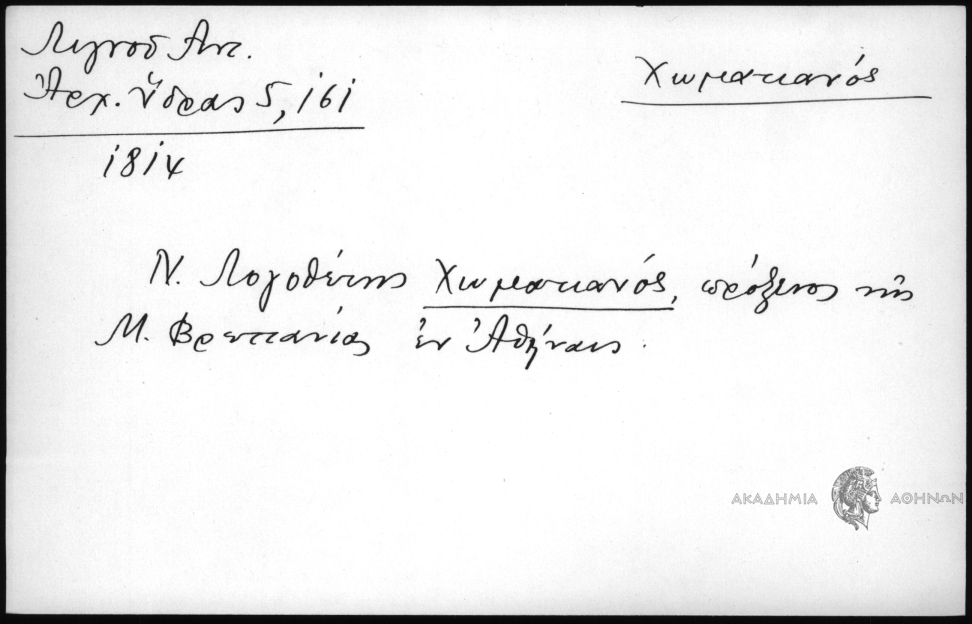 Λιγνοῦ Ἀντ.
Ἀρχ. Ὕδρας 5, 161
1814
Χωματιανός
Ν. Λογοθέτης Χωματιανός, πρόξενος τῆς
Μ. Βρεττανίας ἐν Ἀθήναις.
ΑΚΑΔΗΜΙΑ ΑΘΗΝΩΝ